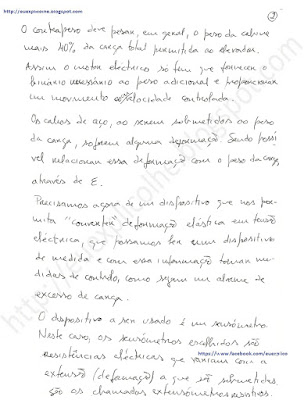 http://ousaysnoolne.blogspot.com
2
O contrapeso deve pesar, em geral, o peso da cabine
mais 40% da carga total permitida ao elevador.
Assim o motor eléctrico só tem que fornecer o
binário necessário ao peso adicional e proporcionar
um movimento de velocidade controlada.
Os cabos de aço, ao serem submetidos ao peso
da carga, sofrem alguma deformação. Sendo possí
vel relacionar essa deformação com o peso da carga,
através de E.
Precisamos agora de um dispositivo que nos per
mita "converter" deformação elástica em tensão
eléctrica, que possamos ler num dispositivo
de medida e com essa informação tomar me
didas de controlo, como sejam um alarme de
excesso de carga.
O dispositivo a ser usado é um sensómetro.
Neste caso, os sensómetros escolhidos são
resistências eléctricas que variam com a
extensão (deformação) a que são submetidas,
são as chamadas extensómetros resistivos.